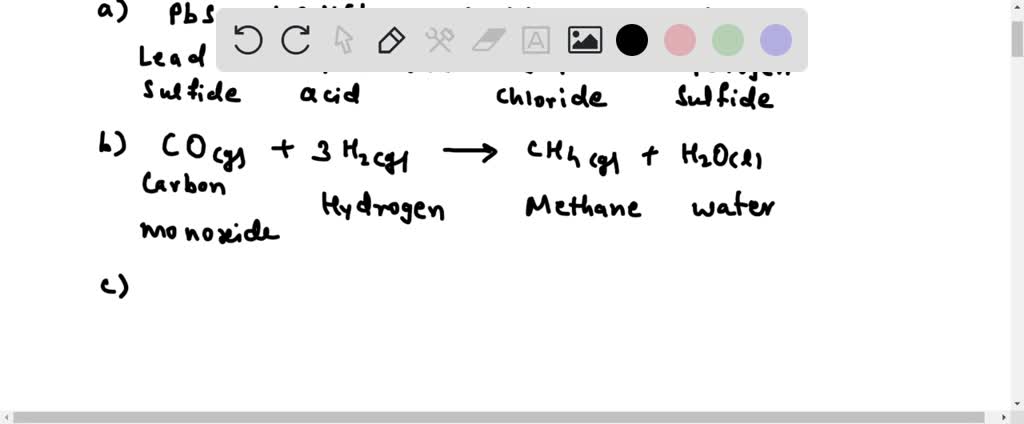 a) PbS
Lead
Sulfide acid Chloride Sulfide
b) CO(g) + 3 H2(g) → CH4(g) + H2O(l)
Carbon Hydrogen Methane water
monoxide
c)